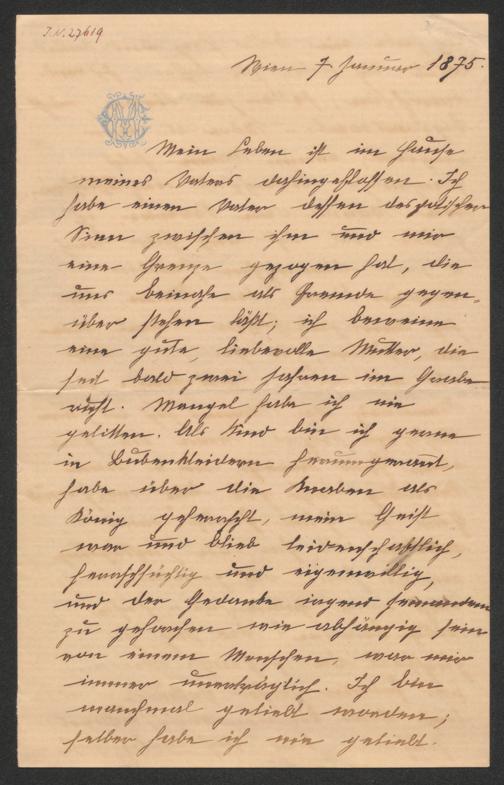 J.N. 27619
Wien 7 Januar 1875.
Mein Leben ist im Hause
meines Vaters dahingeflossen. Ich
habe einen Vater dessen despotischer
Sinn zwischen ihm und mir
eine Grenze gezogen hat, die
uns beinahe als Fremde gegen-
über stehen läßt; ich beweine
eine gute, liebevolle Mutter, die
seit bald zwei Jahren im Grabe
ruht. Mangel habe ich nie
gelitten. Als Kind bin ich gerne
in Bubenkleidern herumgerannt,
habe über die Knaben als
König geherrscht, mein Geist
war und blieb leidenschaftlich,
herrschsüchtig und eigenwillig,
und der Gedanke irgend jemandem
zu gehorchen wie abhängig sein
von einem Menschen, war mir
immer unerträglich. Ich bin
manchmal geliebt worden;
selber habe ich nie geliebt.